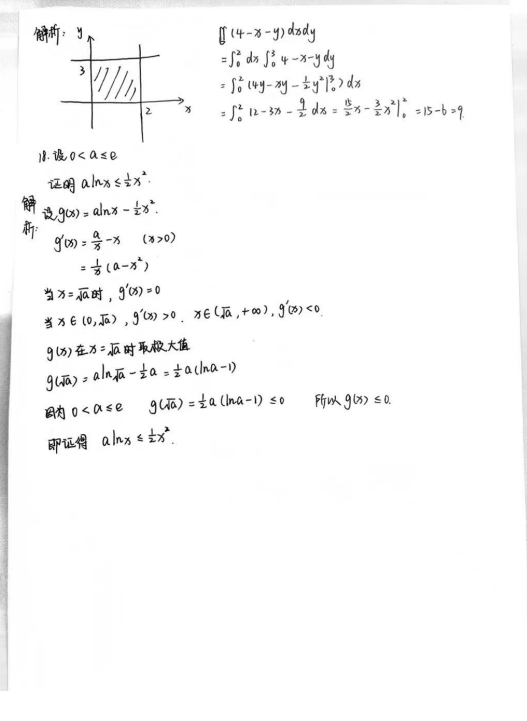 解析: y
3
2
x
∬(4-x-y)dxdy
=∫₀² dx ∫₀³ 4-x-y dy
=∫₀² (4y-xy-½y²|₀³) dx
=∫₀² 12-3x-9/2 dx = 15/2 x - 3/2 x²|₀² =15-6=9.
18. 设 0<a≤e
证明 alnx≤½x².
解析: 设 g(x)=alnx-½x².
g'(x)=a/x-x (x>0)
=1/x(a-x²)
当x=√a时, g'(x)=0
当x∈(0,√a), g'(x)>0. x∈(√a,+∞), g'(x)<0.
g(x)在x=√a时取极大值
g(√a)=aln√a-½a=½a(lna-1)
因为 0<a≤e g(√a)=½a(lna-1)≤0 所以 g(x)≤0.
即证得 alnx≤½x².